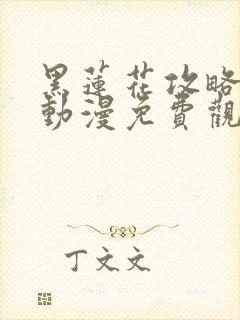 黑蓮花攻略
動漫免費觀
丁文文